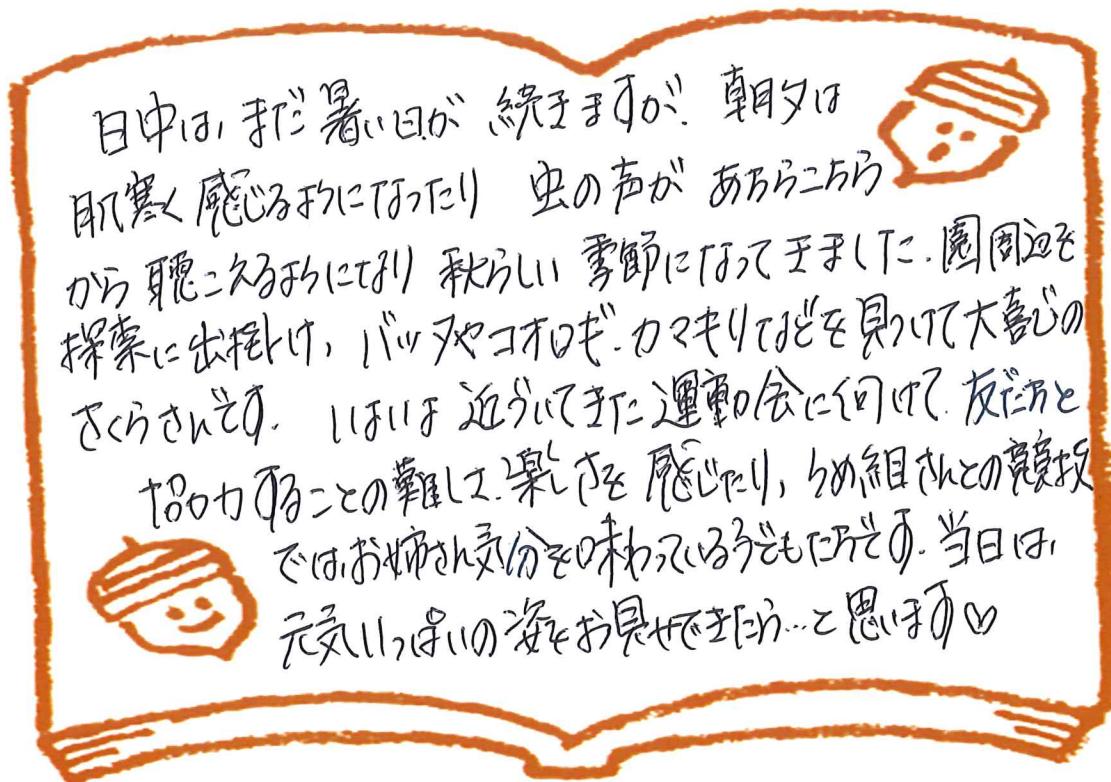 日中は、まだ暑い日が続きますが、朝夕は
肌寒く感じるようになったり 虫の声が あちらこちら
から聴こえるようになり 秋らしい季節になってきました。園周辺を
探索に出掛け、バッタやコオロギ、カマキリなどを見つけて大喜びの
さくらさんです。 いよいよ近づいてきた運動会に向けて、友だちと
協力することの難しさ、楽しさを感じたり、うめ組さんとの競技
では、お姉さん気分を味わっている子どもたちです。当日は、
元気いっぱいの姿をお見せできたら…と思います♡